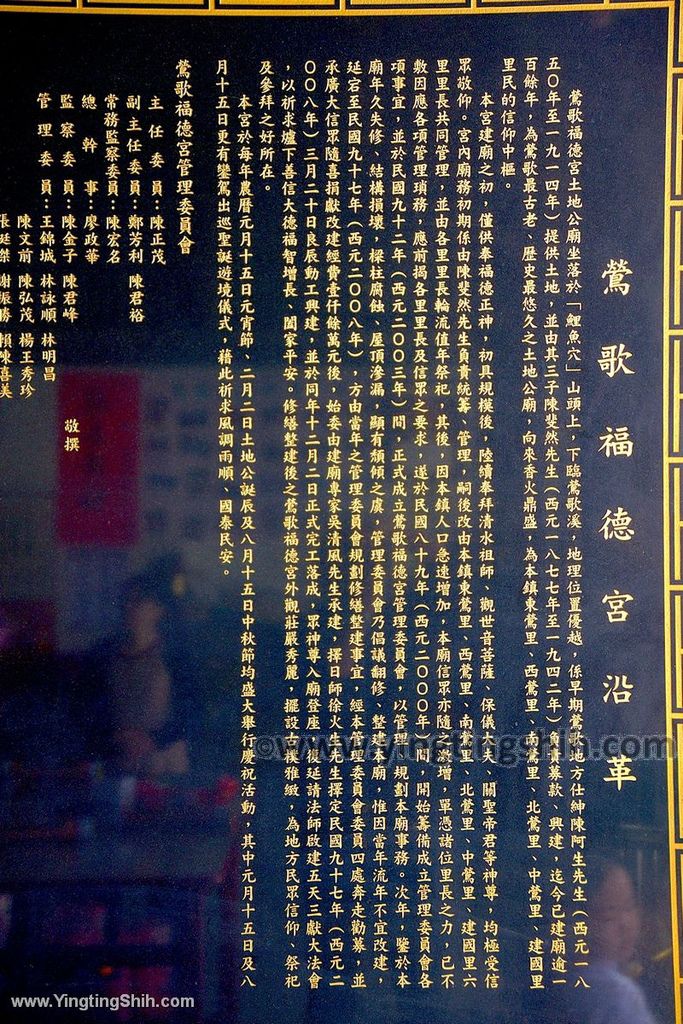 鶯歌福德宮沿革
鶯歌福德宮土地公廟坐落於「鯉魚穴」山頭上，下臨鶯歌溪，地理位置優越，係早期鶯歌地方仕紳陳阿生先生（西元一八
五０年至一九一四年）提供土地，並由其三子陳斐然先生（西元一八七七年至一九四二年）負責募款、興建，迄今已建廟逾一
百餘年，為鶯歌最古老、歷史最悠久之土地公廟，向來香火鼎盛，為本鎮東鶯里、西鶯里、南鶯里、北鶯里、中鶯里、建國里
里民的信仰中樞。
本宮建廟之初，僅供奉福德正神，初具規模後，陸續奉拜清水祖師、觀世音菩薩、保儀大夫、關聖帝君等神尊，均極受信
眾敬仰。宮內廟務初期係由陳斐然先生負責統籌、管理，嗣後改由本鎮東鶯里、西鶯里、南鶯里、北鶯里、中鶯里、建國里六
里里長共同管理，並由各里里長輪流值年祭祀，其後，因本鎮人口急速增加，本廟信眾亦隨之激增，單憑諸位里長之力，已不
敷因應各項管理瑣務，應前揭各里里長及信眾之要求，遂於民國八十九年（西元二０００年）間，開始籌備成立管理委員會各
項事宜，並於民國九十二年（西元二００三年）間，正式成立鶯歌福德宮管理委員會，以管理、規劃本廟事務。次年，鑒於本
廟年久失修、結構損壞，樑柱腐蝕、屋頂滲漏，顯有頹傾之虞，管理委員會乃倡議翻修、整建本廟，惟因當年流年不宜改建，
延宕至民國九十七年（西元二００八年），方由當年之管理委員會規劃修繕整建事宜，經本管理委員會委員四處奔走勸募，並
承廣大信眾隨喜捐獻改建經費壹仟餘萬元後，始委由建廟專家吳清風先生承建，擇日師徐火 生擇定民國九十七年（西元二
００八年）三月二十日良辰動工興建，並於同年十二月二日正式完工落成，眾神尊入廟登座，復延請法師啟建五天三獻大法會
，以祈求爐下善信大德福智增長、闔家平安。修繕整建後之鶯歌福德宮外觀莊嚴秀麗，擺設古樸雅緻，為地方民眾信仰、祭祀
及參拜之好所在。
本宮於每年農曆元月十五日元宵節、二月二日土地公誕辰及八月十五日中秋節均盛大舉行慶祝活動，其中元月十五日及八
月十五日更有鑾駕出巡聖誕遊境儀式，藉此祈求風調雨順、國泰民安。
鶯歌福德宮管理委員會 敬撰
主任委員：陳正茂
副主任委員：鄭芳利 陳君裕
常務監察委員：陳宏名
總幹事：廖政華
監察委員：陳金子 陳君峰
管理委員：王錦城 林詠順 林明昌
陳文前 陳弘茂 楊王秀珍
張廷傑 謝振勝 賴陳喜美
©www.YingtingShih.com
www.YingtingShih.com